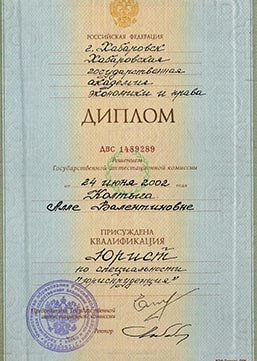 РОССИЙСКАЯ ФЕДЕРАЦИЯ
г. Хабаровск
Хабаровская
государственная
академия
экономики и права
ДИПЛОМ
ДВС 1489289
Решением
Государственной аттестационной комиссии
от 24 июня 2002 года
Колтыга
Алле Валентиновне
ПРИСУЖДЕНА
КВАЛИФИКАЦИЯ
Юрист
по специальности
"юриспруденция"
Председатель Государственной
аттестационной комиссии
Ректор